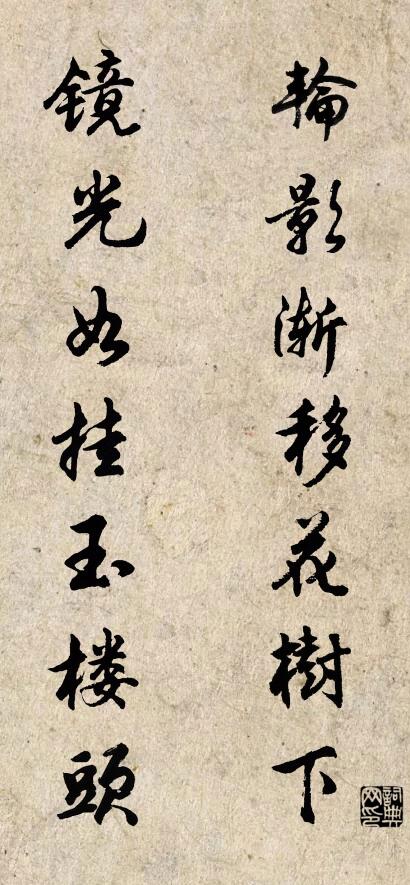 輪影漸移花樹下
鏡光如挂玉楼頭
詞典网印